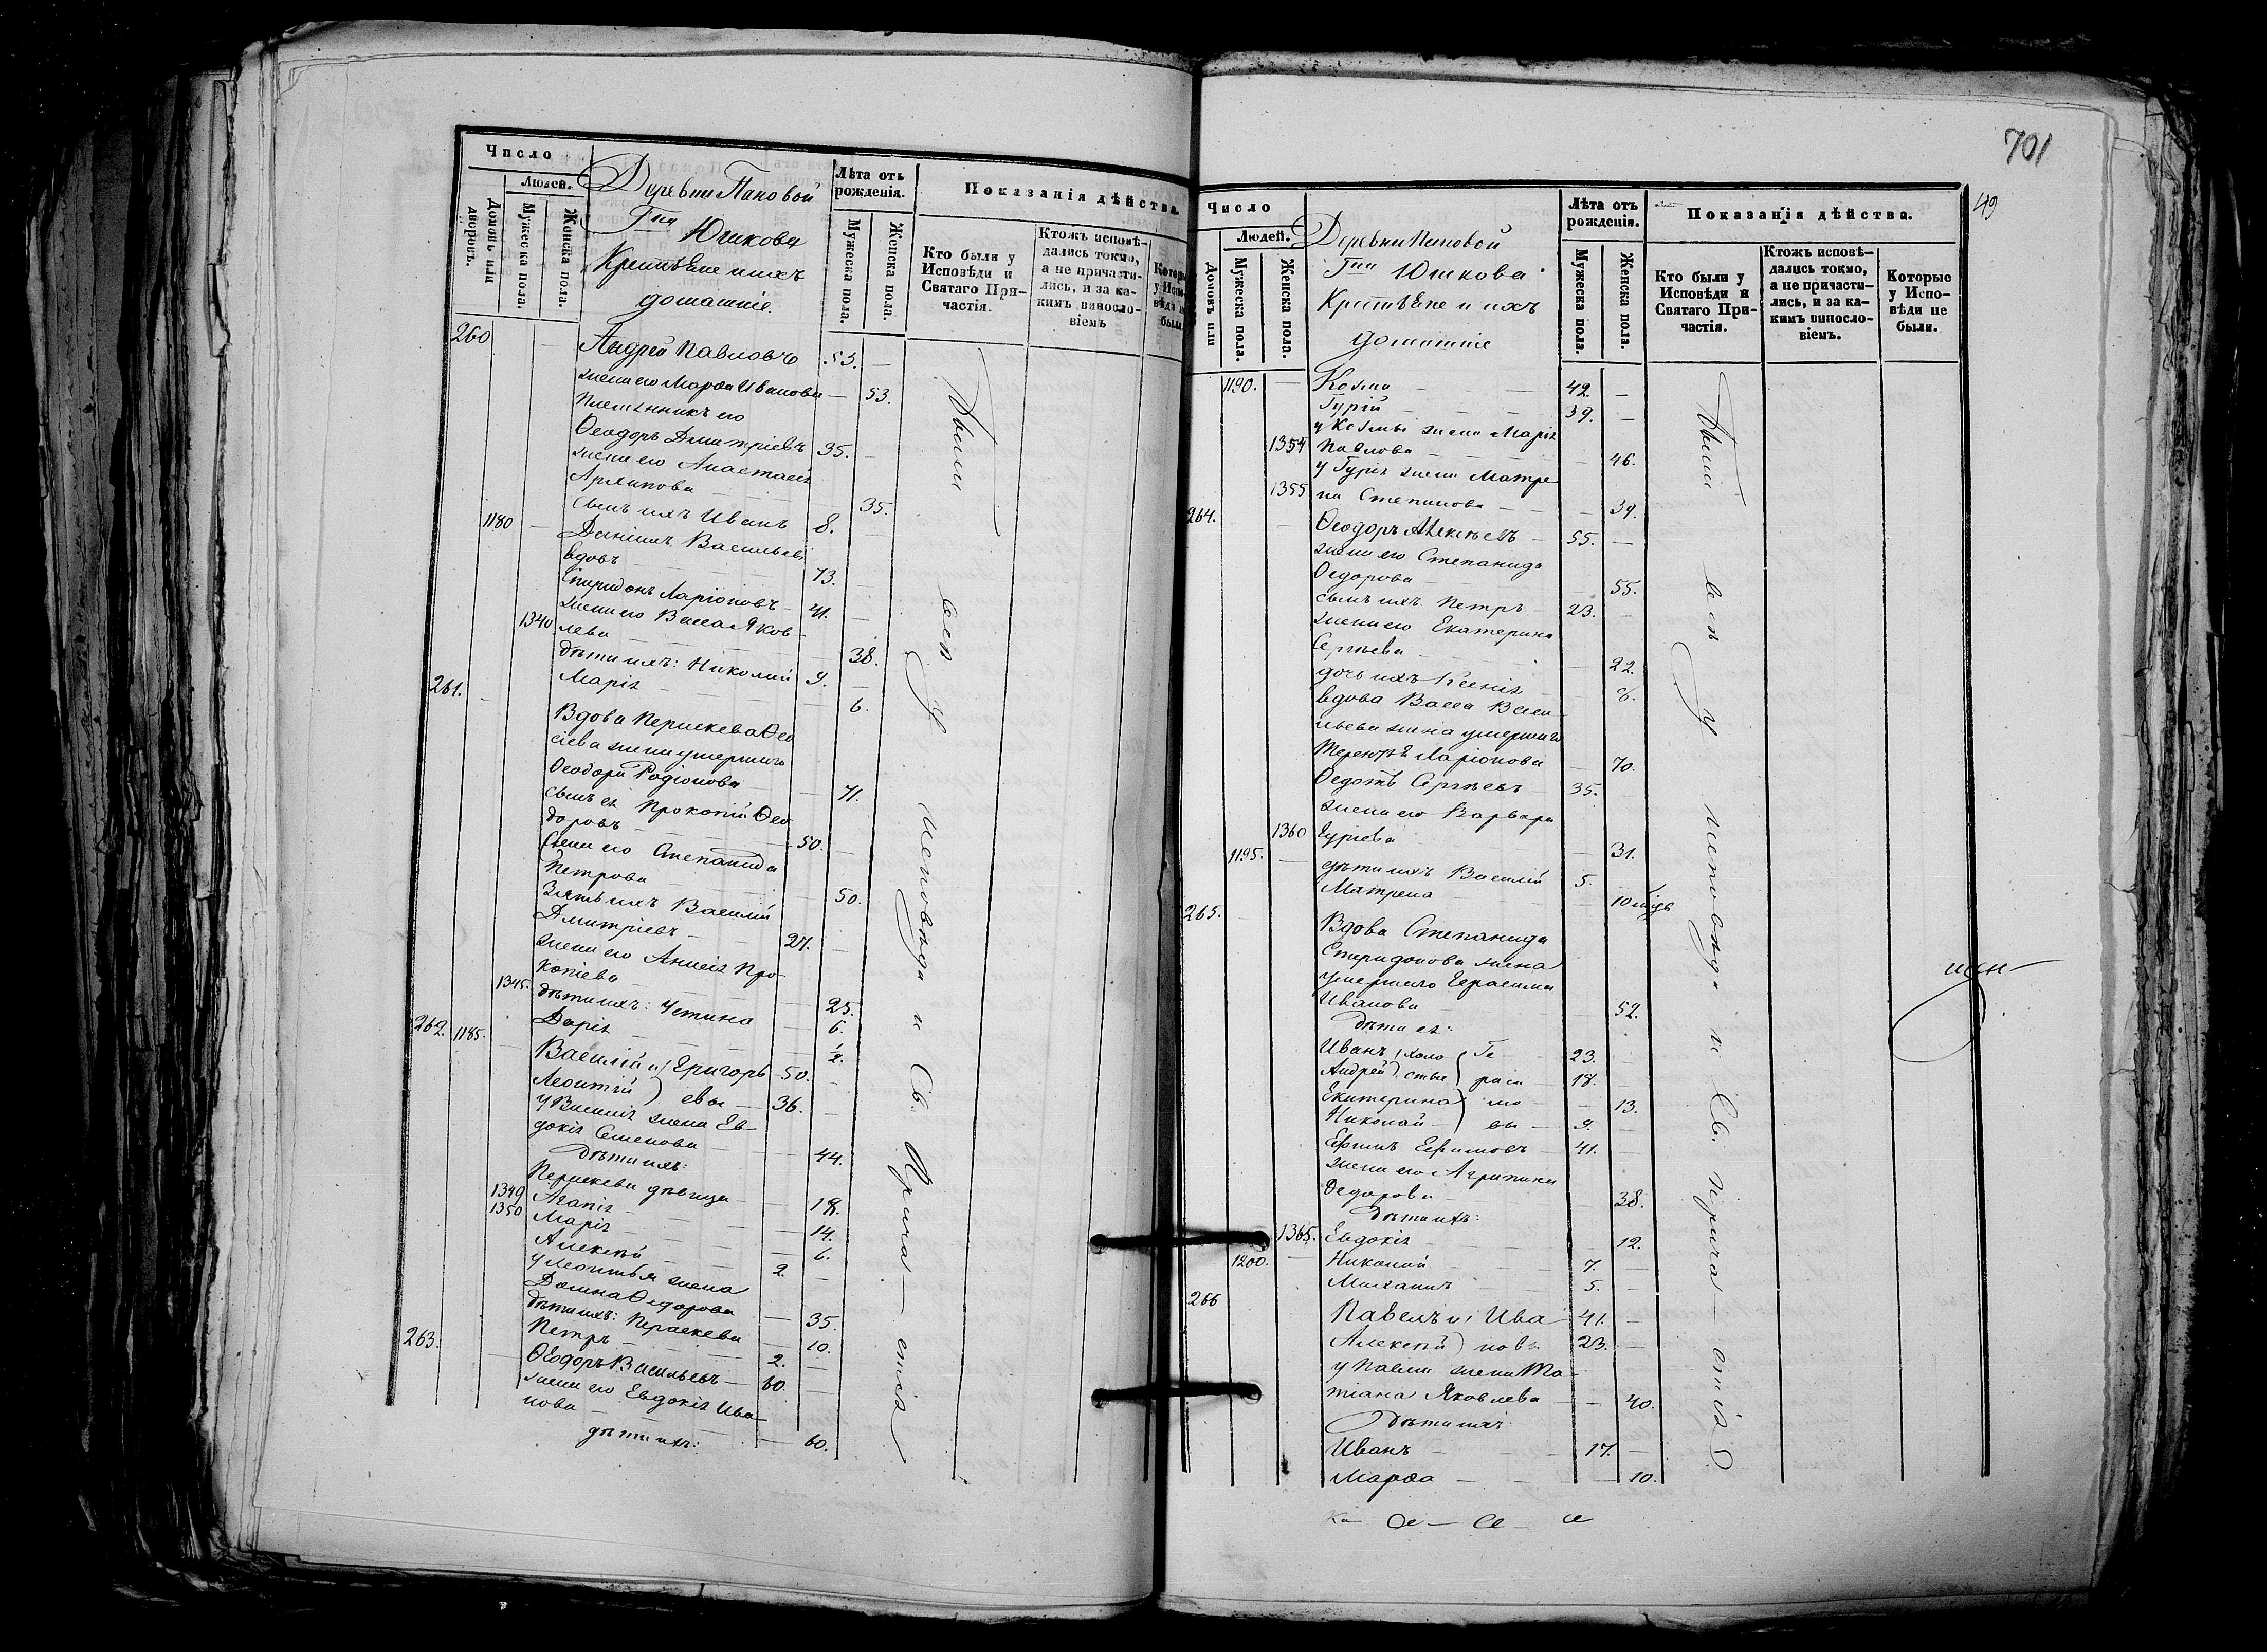 Число
Людей.
Домовъ или дворовъ.
Мужеска пола.
Женска пола.
Деревни Пановой
Гна Юшкова
Крестьяне и ихъ
домашніе.
Лѣта отъ рожденія.
Мужеска пола.
Женска пола.
Показанія дѣйства.
Кто были у Исповѣди и Святаго Причастія.
Ктожъ исповѣдались токмо, а не причастились, и за какимъ винословіемъ
260 — Андрей Павловъ 53. —
жена его Марѳа Иванова — 53.
Племянникъ его
Ѳеодоръ Дмитріевъ 35. —
жена его Анастасія
Архипова 35.
1180 — Сынъ ихъ Иванъ 8. —
Даніилъ Васильевъ
вдовъ 73. —
Спиридонъ Ларіоновъ — 41. —
жена его Васса Яков-
1340 лева 38.
дѣти ихъ: Николай 9. —
Марія — 6.
261. — Вдова Пераскева Ѳео
сіева жена умершаго
Ѳеодора Родіонова — 71.
сынъ ея Прокопій Ѳео
доровъ — 50. —
Жена его Степанида
Петрова — 50.
Зять ихъ Василій
Дмитріевъ — 27. —
жена его Анисія Про-
копіева — 25.
1345. дѣти ихъ: Устина — 6.
Дарія — 1/2.
262. 1185. — Василій и (Григорь 50. —
Леонтій ) евы — 36. —
у Василія жена Ев-
докія Семенова — 44.
дѣти ихъ:
Пераскева дѣвица — 18.
1349 Агапія — 14.
1350 Марія — 6.
Алексѣй — 2. —
у Леонтья жена
Домна Ѳедорова — 35.
дѣти ихъ: Пераскева — 10.
Петръ — 2. —
263. — Ѳеодоръ Васильевъ — 60. —
жена его Евдокія Ива-
нова — 60.
дѣти ихъ:
Были всѣ у исповѣди и Св. Прича-стія
701
49
Число
Людей.
Домовъ или
Мужеска пола.
Женска пола.
Деревни Пановой
Гна Юшкова
Крестьяне и ихъ
домашніе
Лѣта отъ рожденія.
Мужеска пола.
Женска пола.
Показанія дѣйства.
Кто были у Исповѣди и Святаго Причастія.
Ктожъ исповѣдались токмо, а не причастились, и за какимъ винословіемъ.
Которые у Исповѣди не были.
1190. — Козма — 42. —
Гурій — 39. —
у Козмы жена Марія
1354 Павлова — 46.
у Гурія жена Матре
1355 на Степанова — 39.
264. — Ѳеодоръ Алексѣевъ — 55. —
жена его Степанида
Ѳедорова 55.
сынъ ихъ Петръ — 23. —
жена его Екатерина
Сергѣева — 22.
дочь ихъ Ксенія — 8.
вдова Васса Васи-
льева жена умершаго
Терентья Ларіонова — 70.
Ѳедотъ Сергѣевъ 35. —
жена его Варвара
1360 Гурьева — 31.
1195. — дѣти ихъ Василій 5. —
Матрена — 10
265. Вдова Степанида
Спиридонова жена
умершаго Герасима
Иванова — 52.
дѣти ея:
Иванъ (холо (Ге — 23. —
Андрей) стые) раси — 18. —
Екатерина) мо — — 13.
Николай — ) вы — 9. —
Ефимъ Ефимовъ — 41. —
жена его Агрипина
Ѳедорова — 38.
дѣти ихъ:
1365. Евдокія — 12.
1200. — Николай — 7. —
Михаилъ — 5. —
266 Павелъ и ) Ива 41. —
Алексѣй ) новъ 23. —
у Павла жена Та-
тіана Яковлева — 40.
дѣти ихъ
Иванъ — 17. —
Марѳа — 10.
Были всѣ у исповѣди и Св. Прича-стія